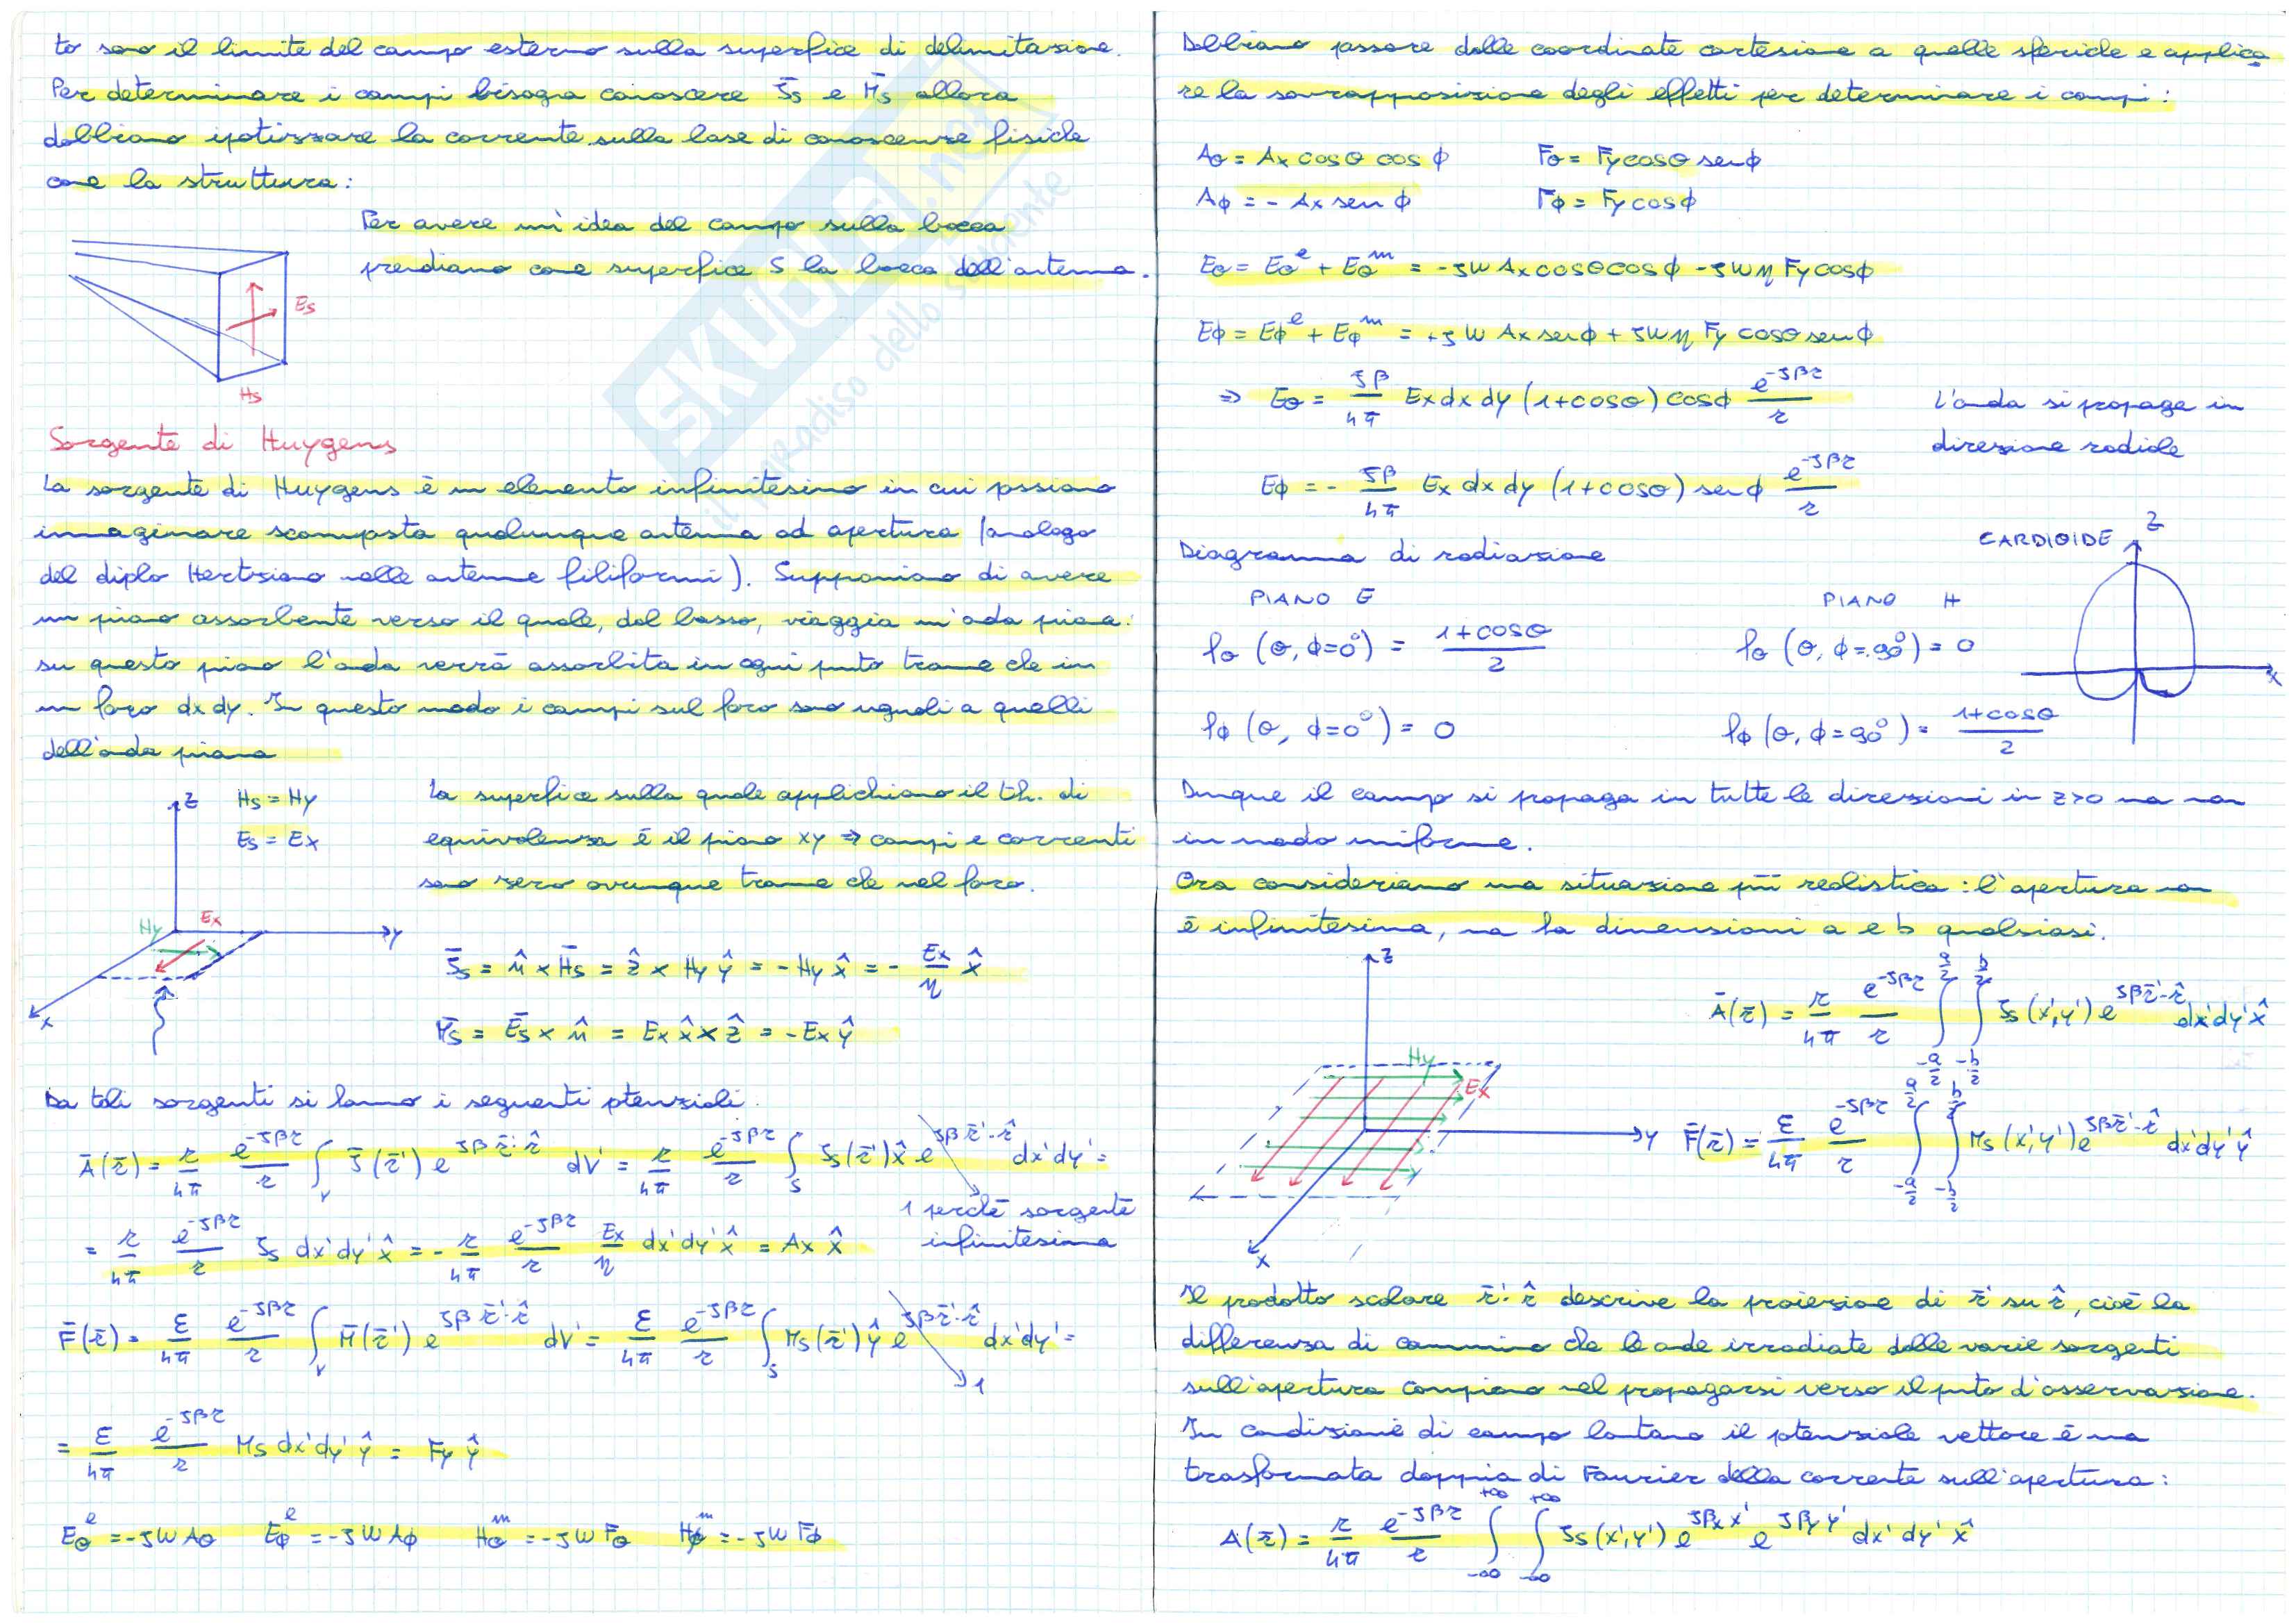 to sono il limite del campo esterno sulla superfice di delimitazione.
Per determinare i campi bisogna conoscere J̄s e M̄s allora
dobbiamo ipotizzare la corrente sulla base di conoscenze fisiche
come la struttura:
Per avere un'idea del campo sulla bocca
prendiamo come superfice S la bocca dell'antenna.
Es
Hs
Sorgente di Huygens
La sorgente di Huygens è un elemento infinitesimo in cui possiamo
immaginare scomposta qualunque antenna ad apertura (analogo
del diplo Hertziano nelle antenne filiformi). Supponiamo di avere
un piano assorbente verso il quale, dal basso, viaggia un'onda piana:
su questo piano l'onda verrà assorbita in ogni punto tranne che in
un foro dx dy. In questo modo i campi sul foro sono uguali a quelli
dell'onda piana
z
Hs = Hy
Es = Ex
La superfice sulla quale applichiamo il th. di
equivalenza è il piano xy ⇒ campi e correnti
sono zero ovunque tranne che nel foro.
Hy Ex
y
x
J̄s = n̂ × H̄s = ẑ × Hy ŷ = - Hy x̂ = - Ex/η x̂
M̄s = Ēs × n̂ = Ex x̂ × ẑ = - Ex ŷ
Da tali sorgenti si hanno i seguenti ptenziali:
Ā(r̄) = μ/4π e^-Jβr/r ∫v J̄(r̄') e^Jβ r̄'·r̂ dV' = μ/4π e^-Jβr/r ∫s Js(r̄') x̂ e^Jβ r̄'·r̂ dx'dy' =
1 perchè sorgente
infinitesima
= μ/4π e^-Jβr/r Js dx'dy' x̂ = - μ/4π e^-Jβr/r Ex/η dx'dy' x̂ = Ax x̂
F̄(r̄) = ε/4π e^-Jβr/r ∫v M̄(r̄') e^Jβ r̄'·r̂ dV' = ε/4π e^-Jβr/r ∫s Ms(r̄') ŷ e^Jβ r̄'·r̂ dx'dy' =
1
= ε/4π e^-Jβr/r Ms dx'dy' ŷ = Fy ŷ
Eθ^e = -Jω Aθ Eϕ^e = -Jω Aϕ Hθ^m = -Jω Fθ Hϕ^m = -Jω Fϕ
Dobbiamo passare dalle coordinate cartesiane a quelle sferiche e applica
re la sovrapposizione degli effetti per determinare i campi:
Aθ = Ax cosθ cosϕ Fθ = Fy cosθ senϕ
Aϕ = - Ax sen ϕ Fϕ = Fy cosϕ
Eθ = Eθ^e + Eθ^m = -Jω Ax cosθ cosϕ - Jωη Fy cosϕ
Eϕ = Eϕ^e + Eϕ^m = +Jω Ax senϕ + Jωη Fy cosθ senϕ
⇒ Eθ = Jβ/4π Ex dx dy (1+cosθ) cosϕ e^-Jβr/r
L'onda si propaga in
direzione radiale
Eϕ = - Jβ/4π Ex dx dy (1+cosθ) sen ϕ e^-Jβr/r
Diagramma di radiazione
CARDIOIDE
z
x
PIANO E PIANO H
fθ (θ, ϕ=0°) = 1+cosθ/2 fθ (θ, ϕ=90°) = 0
fϕ (θ, ϕ=0°) = 0 fϕ (θ, ϕ=90°) = 1+cosθ/2
Dunque il campo si propaga in tutte le direzioni in z>0 ma non
in modo uniforme.
Ora consideriamo una situazione più realistica: l'apertura non
è infinitesima, ma ha dimensioni a e b qualsiasi.
z
Hy
Ex
y
x
Ā(r̄) = μ/4π e^-Jβr/r ∫-a/2^a/2 ∫-b/2^b/2 Js(x',y') e^Jβ r̄'·r̂ dx'dy' x̂
F̄(r̄) = ε/4π e^-Jβr/r ∫-a/2^a/2 ∫-b/2^b/2 Ms(x',y') e^Jβ r̄'·r̂ dx'dy' ŷ
Il prodotto scalare r̄'·r̂ descrive la proiezione di r̄' su r̂, cioè la
differenza di cammino che le onde irradiate dalle varie sorgenti
sull'apertura compiono nel propagarsi verso il punto d'osservazione.
In condizioni di campo lontano il potenziale vettore è una
trasformata doppia di Fourier della corrente sull'apertura:
A(r̄) = μ/4π e^-Jβr/r ∫-∞^+∞ ∫-∞^+∞ Js(x',y') e^Jβx x' e^Jβy y' dx' dy' x̂
SKUOLA.net
il paradiso dello studente